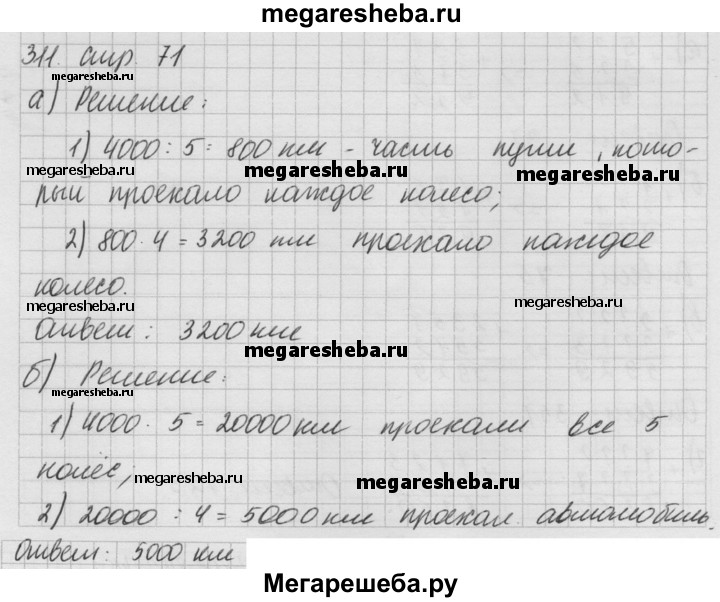 megaresheba.ru
311. стр. 71
megaresheba.ru
а) Решение:
megaresheba.ru
1) 4000 : 5 = 800 км - часть пути, кото-
megaresheba.ru
megaresheba.ru
рый проехало каждое колесо;
2) 800 · 4 = 3200 км проехало каждое
колесо.
megaresheba.ru
Ответ: 3200 км
megaresheba.ru
б) Решение:
megaresheba.ru
1) 4000 · 5 = 20000 км проехали все 5
колёс;
megaresheba.ru
megaresheba.ru
2) 20000 : 4 = 5000 км проехал автомобиль.
Ответ: 5000 км
Мегарешеба.ру